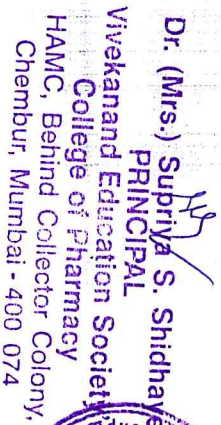 Dr. (Mrs.) Supriya S. Shidhaye
PRINCIPAL
Vivekanand Education Society
College of Pharmacy
HAMC, Behind Collector Colony,
Chembur, Mumbai - 400 074